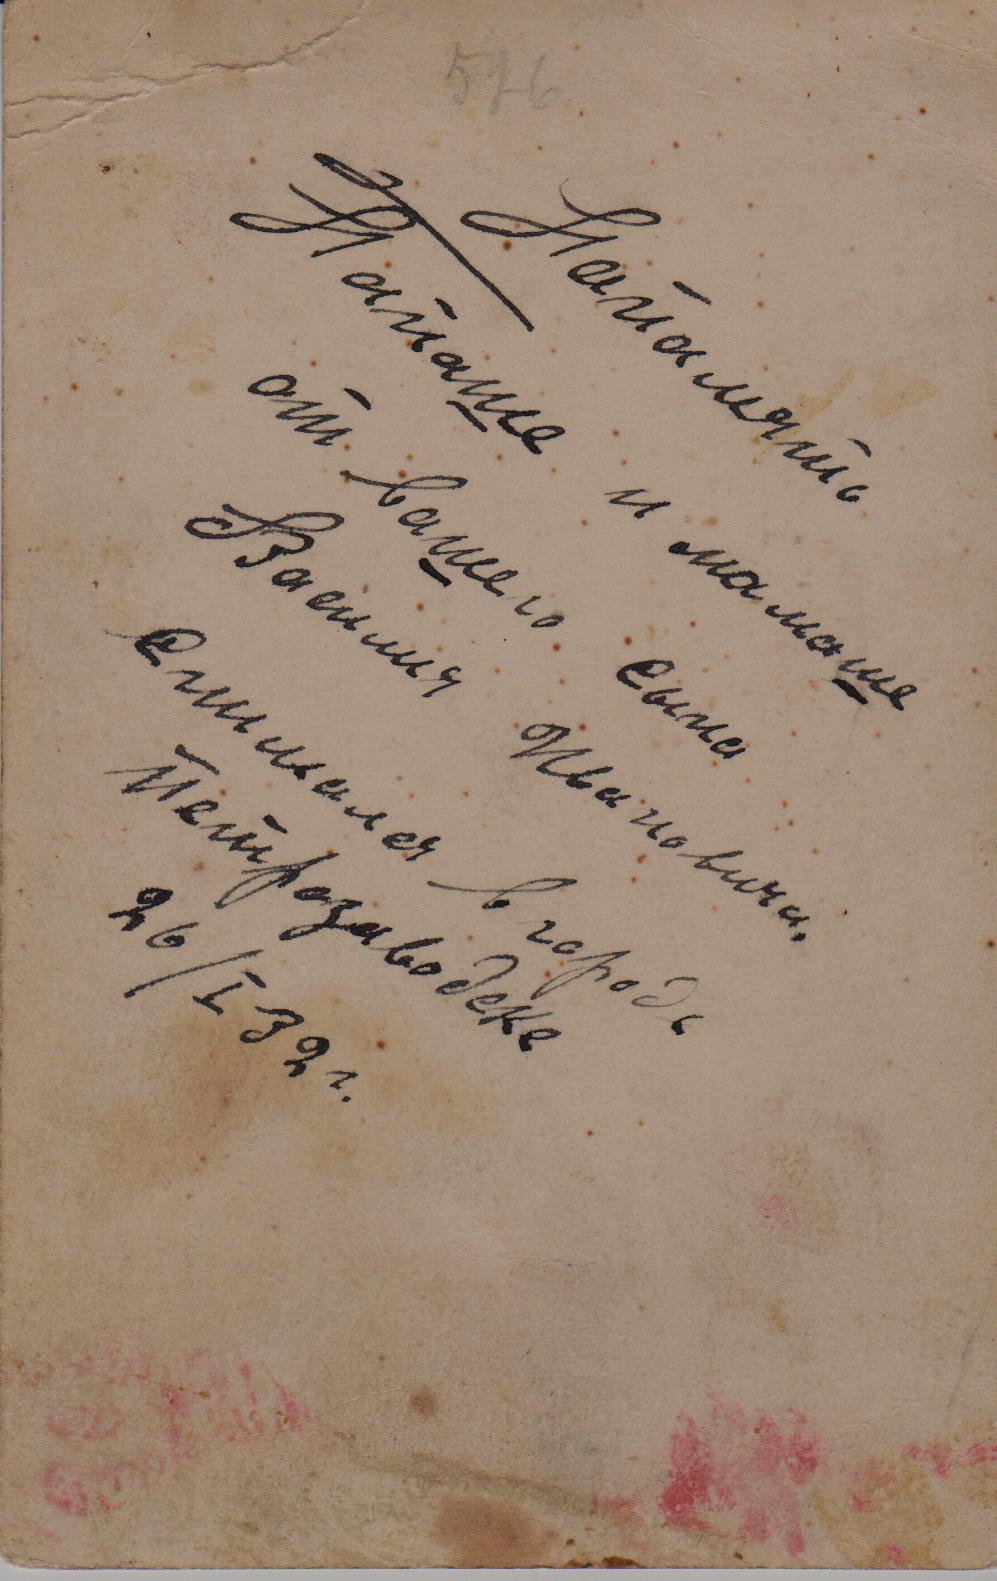 576
Напамять
Папаше и мамаше
от вашего сына
Василия Ивановича.
Снимался в городе
Петрозаводске
26/I 32 г.